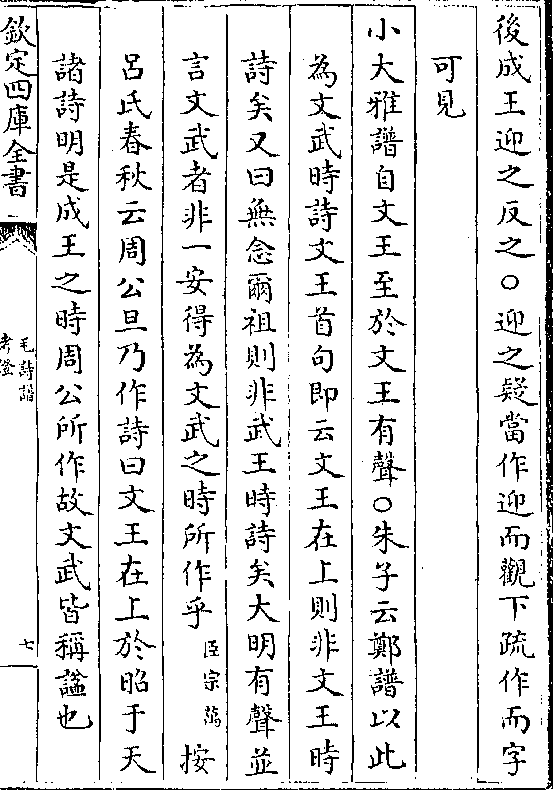 後成王迎之反之○迎之疑當作迎而觀下疏作而字
可見
小大雅譜自文王至於文王有聲○朱子云鄭譜以此
為文武時詩文王首句即云文王在上則非文王時
詩矣又曰無念爾祖則非武王時詩矣大明有聲並
言文武者非一安得為文武之時所作乎臣宗萬按
呂氏春秋云周公旦乃作詩曰文王在上於昭于天
諸詩明是成王之時周公所作故文武皆稱諡也
欽定四庫全書
毛詩譜
考證
七